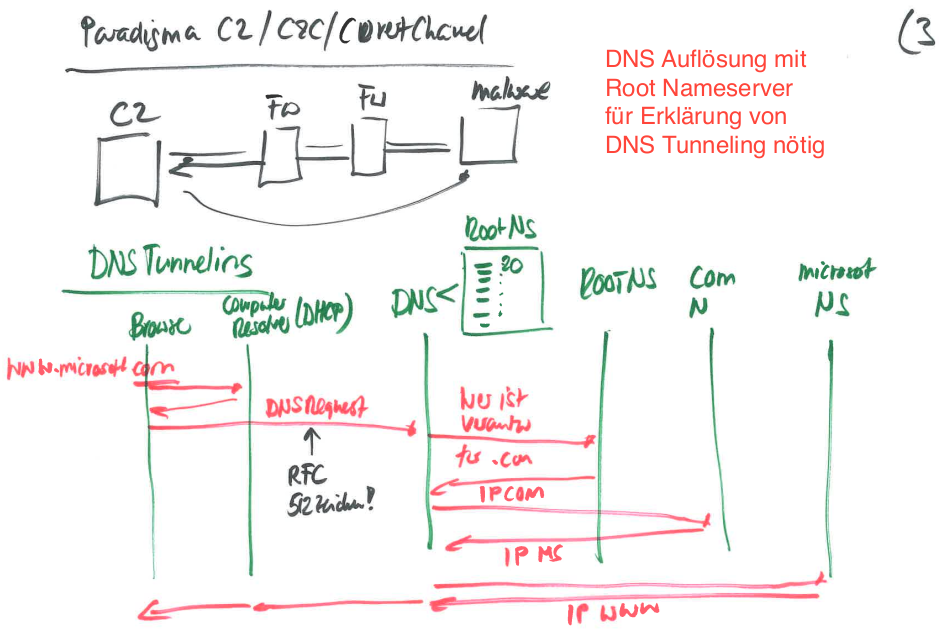 Paradigma C2/C&C/CovertChanel
(3
DNS Auflösung mit
Root Nameserver
für Erklärung von
DNS Tunneling nötig
C2
FW
FW
malware
DNS Tunneling
Root NS
20
Browse
Computer
Resolver (DHCP)
DNS <
ROOT NS
Com
N
microsoft
NS
www.microsoft.com
DNS Request
RFC
512 Zeichen!
Wer ist
verantw
für .com
IP COM
IP MS
IP WWW